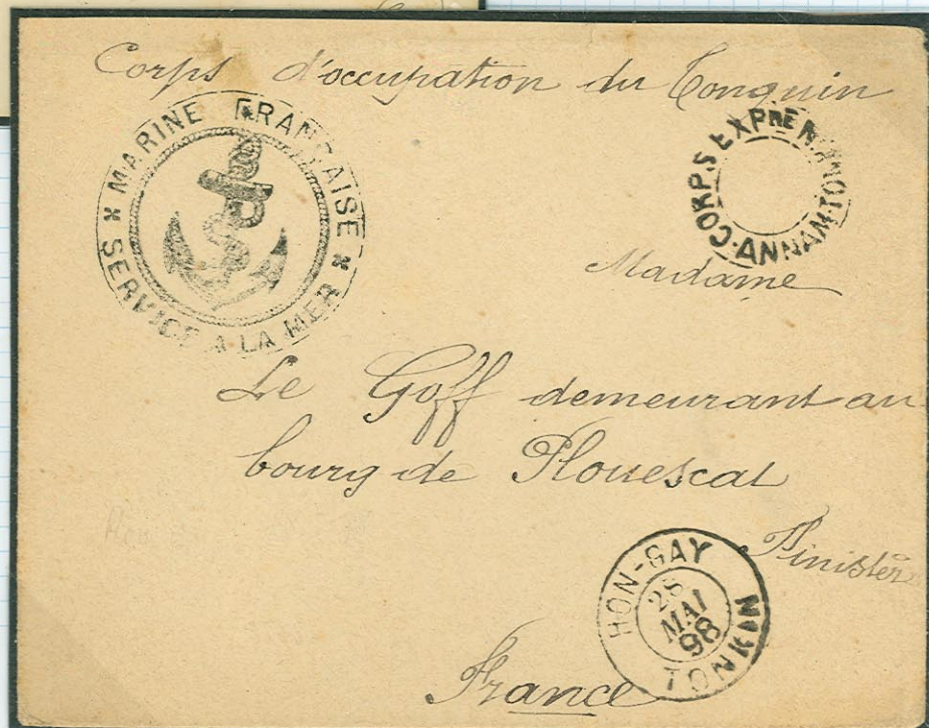 Corps d'occupation du Tonquin
MARINE FRANÇAISE
SERVICE A LA MER
CORPS EXPRE
ANNAM·TO
Madame
Le Goff demeurant au
bourg de Plouescat
Finistère
HON-GAY
28
MAI
98
TONKIN
France